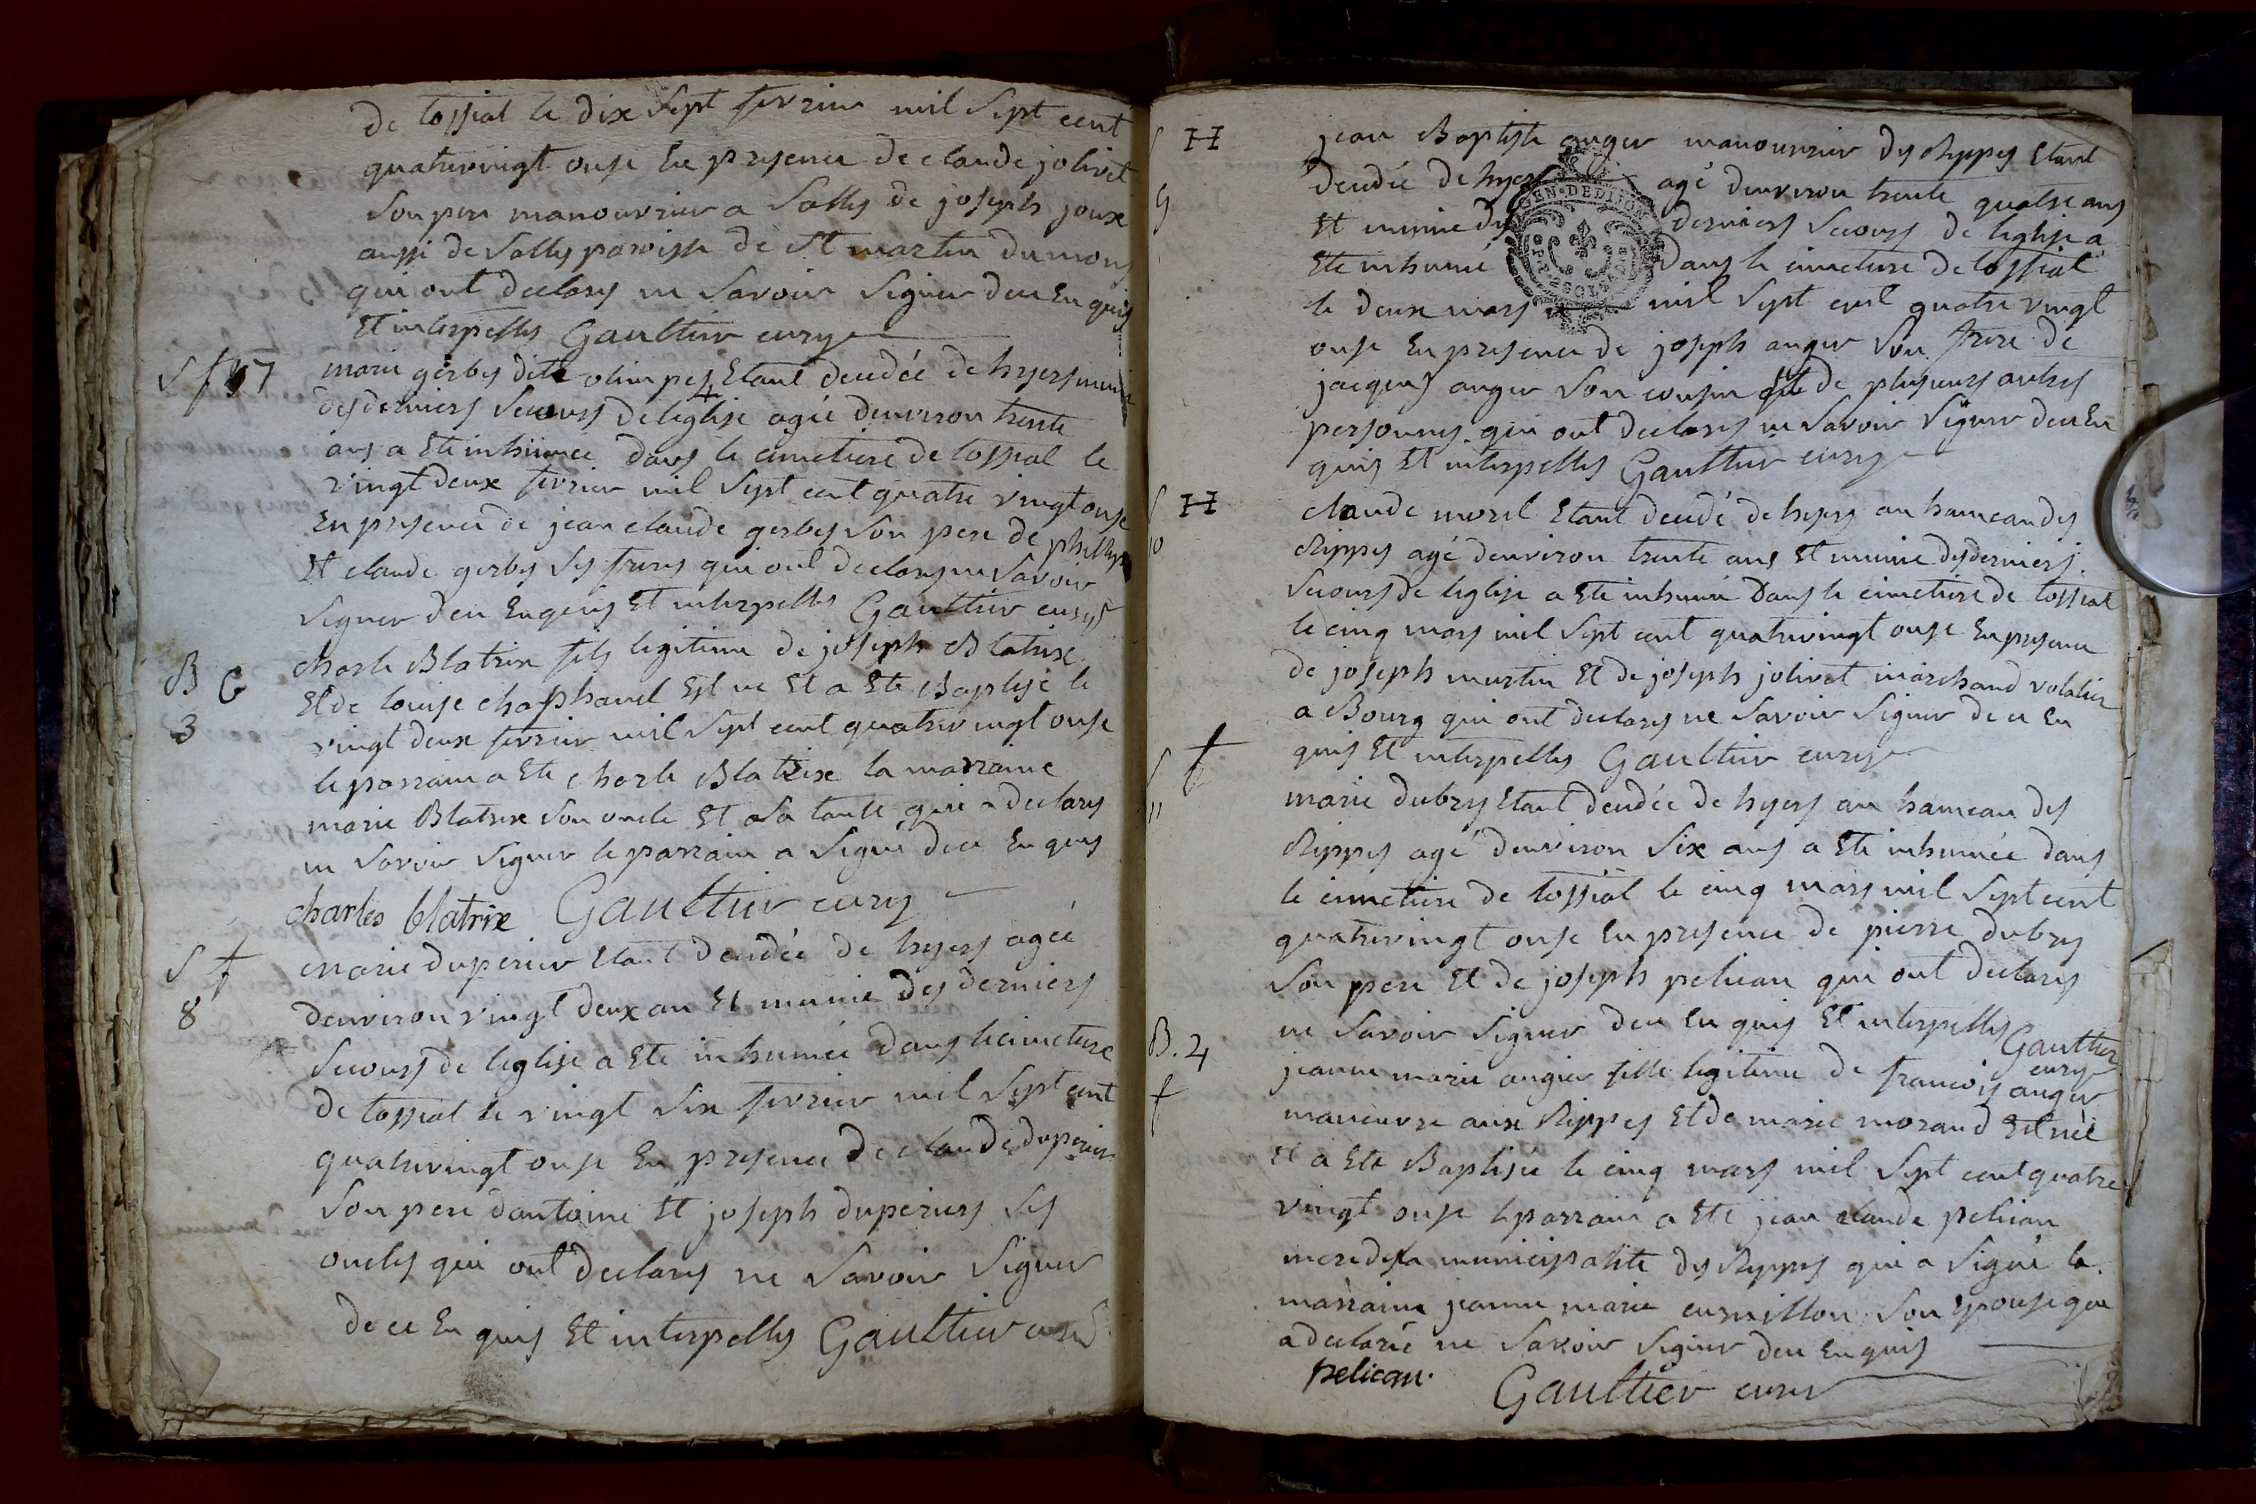 de tossiat le dix sept fevrier mil sept cent
quatrevingt onse en presence de claude jolivet
son pere manouvrier a Salles de joseph joux
aussi de Salles paroisse de St martin du mont
qui ont declarés ne savoir signer de ce enquis
et interpellés Gaultier curé
S f 7
marie gerbes dite olimpes etant decedée de hyers munie
des derniers secours de l'eglise agée denviron trente
ans a ete inhumée dans le cimetiere de tossiat le
vingt deux fevrier mil sept cent quatre vingt onse
en presence de jean claude gerbes son pere de
et claude gerbes ses freres qui ont declarés ne savoir
signer de ce enquis et interpellés Gaultier curé
B G
3
charle Blatrix fils legitime de joseph Blatrix
et de louise chaphanel est ne et a ete Baptisé le
vingt deux fevrier mil sept cent quatrevingt onse
le parrain a ete charle Blatrix la marraine
marie Blatrix son oncle et sa tante qui a declarés
ne savoir signer le parrain a signé de ce enquis
charles blatrix Gaultier curé
S f
8
marie duperier etant decedée de hyers agée
denviron vingt deux an et munie des derniers
secours de leglise a ete inhumée dans le cimetiere
de tossiat le vingt six fevrier mil sept cent
quatrevingt onse en presence de claude duperier
son pere dantoine et joseph duperiers ses
oncles qui ont declarés ne savoir signer
de ce enquis et interpellés Gaultier curé
S H
9
jean Baptiste auger manouvrier des Rippes etant
decedée de hyers agé denviron trente quatre ans
et munie des derniers secours de leglise a
ete inhumé dans le cimetiere de tossiat
le deux mars mil sept cent quatre vingt
onse en presence de joseph auger son frere de
jacques auger son cousin et de plusieurs autres
personnes qui ont declarés ne savoir signer de ce en
quis et interpellés Gaultier curé
GEN. DE DIJON
S H
10
claude morel etant decedé de hyers au hameau des
Rippes agé denviron trente ans et munie des derniers
secours de leglise a ete inhumé dans le cimetiere de tossiat
le cinq mars mil sept cent quatrevingt onse en presence
de joseph murtin et de joseph jolivet marchand volalier
a Bourg qui ont declarés ne savoir signer de ce en
quis et interpellés Gaultier curé
S f
11
marie dubrès etant decedée de hyers au hameau des
Rippes agé denviron six ans a ete inhumée dans
le cimetiere de tossiat le cinq mars mil sept cent
quatrevingt onse en presence de pierre dubrès
son pere et de joseph pelican qui ont declarés
ne savoir signer de ce enquis et interpellés Gaultier
curé
B. 4
f
jeanne marie augier fille legitime de francois auger
maneuvre aux Rippes et de marie morand est née
et a ete Baptisée le cinq mars mil sept cent quatre
vingt onse le parrain a ete jean claude pelican
mere de la municipalité des Rippes qui a signé la
marraine jeanne marie curnillon son epouse qui
a declarée ne savoir signer de ce enquis
pelican. Gaultier curé